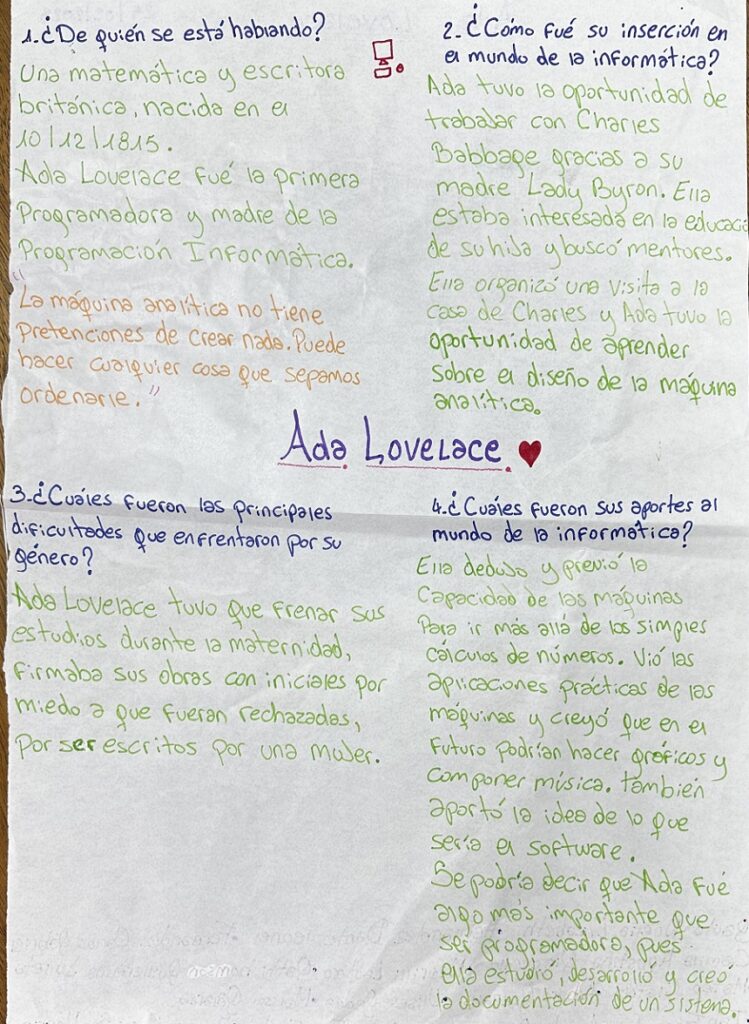 1.¿De quién se está hablando?
Una matemática y escritora
británica, nacida en el
10/12/1815.
Ada Lovelace fué la primera
Programadora y madre de la
Programación Informática.
"La máquina analítica no tiene
pretenciones de crear nada. Puede
hacer cualquier cosa que sepamos
ordenarle."
2.¿Cómo fué su inserción en
el mundo de la informática?
Ada tuvo la oportunidad de
trabajar con Charles
Babbage gracias a su
madre Lady Byron. Ella
estaba interesada en la educació
de su hija y buscó mentores.
Ella organizó una visita a la
casa de Charles y Ada tuvo la
oportunidad de aprender
sobre el diseño de la máquina
analítica.
Ada Lovelace.
3.¿Cuáles fueron las principales
dificultades que enfrentaron por su
género?
Ada Lovelace tuvo que frenar sus
estudios durante la maternidad,
firmaba sus obras con iniciales por
miedo a que fueran rechazadas,
por ser escritos por una mujer.
4.¿Cuáles fueron sus aportes al
mundo de la informática?
Ella dedujo y previó la
capacidad de las máquinas
para ir más allá de los simples
cálculos de números. Vió las
aplicaciones prácticas de las
máquinas y creyó que en el
futuro podrían hacer gráficos y
componer música. también
aportó la idea de lo que
sería el software.
Se podría decir que Ada fué
algo más importante que
ser programadora, pues
ella estudió, desarrolló y creó
la documentación de un sistema.